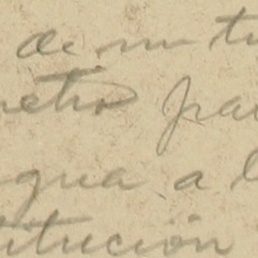 de mi ti
metro pa
gua a l
titución